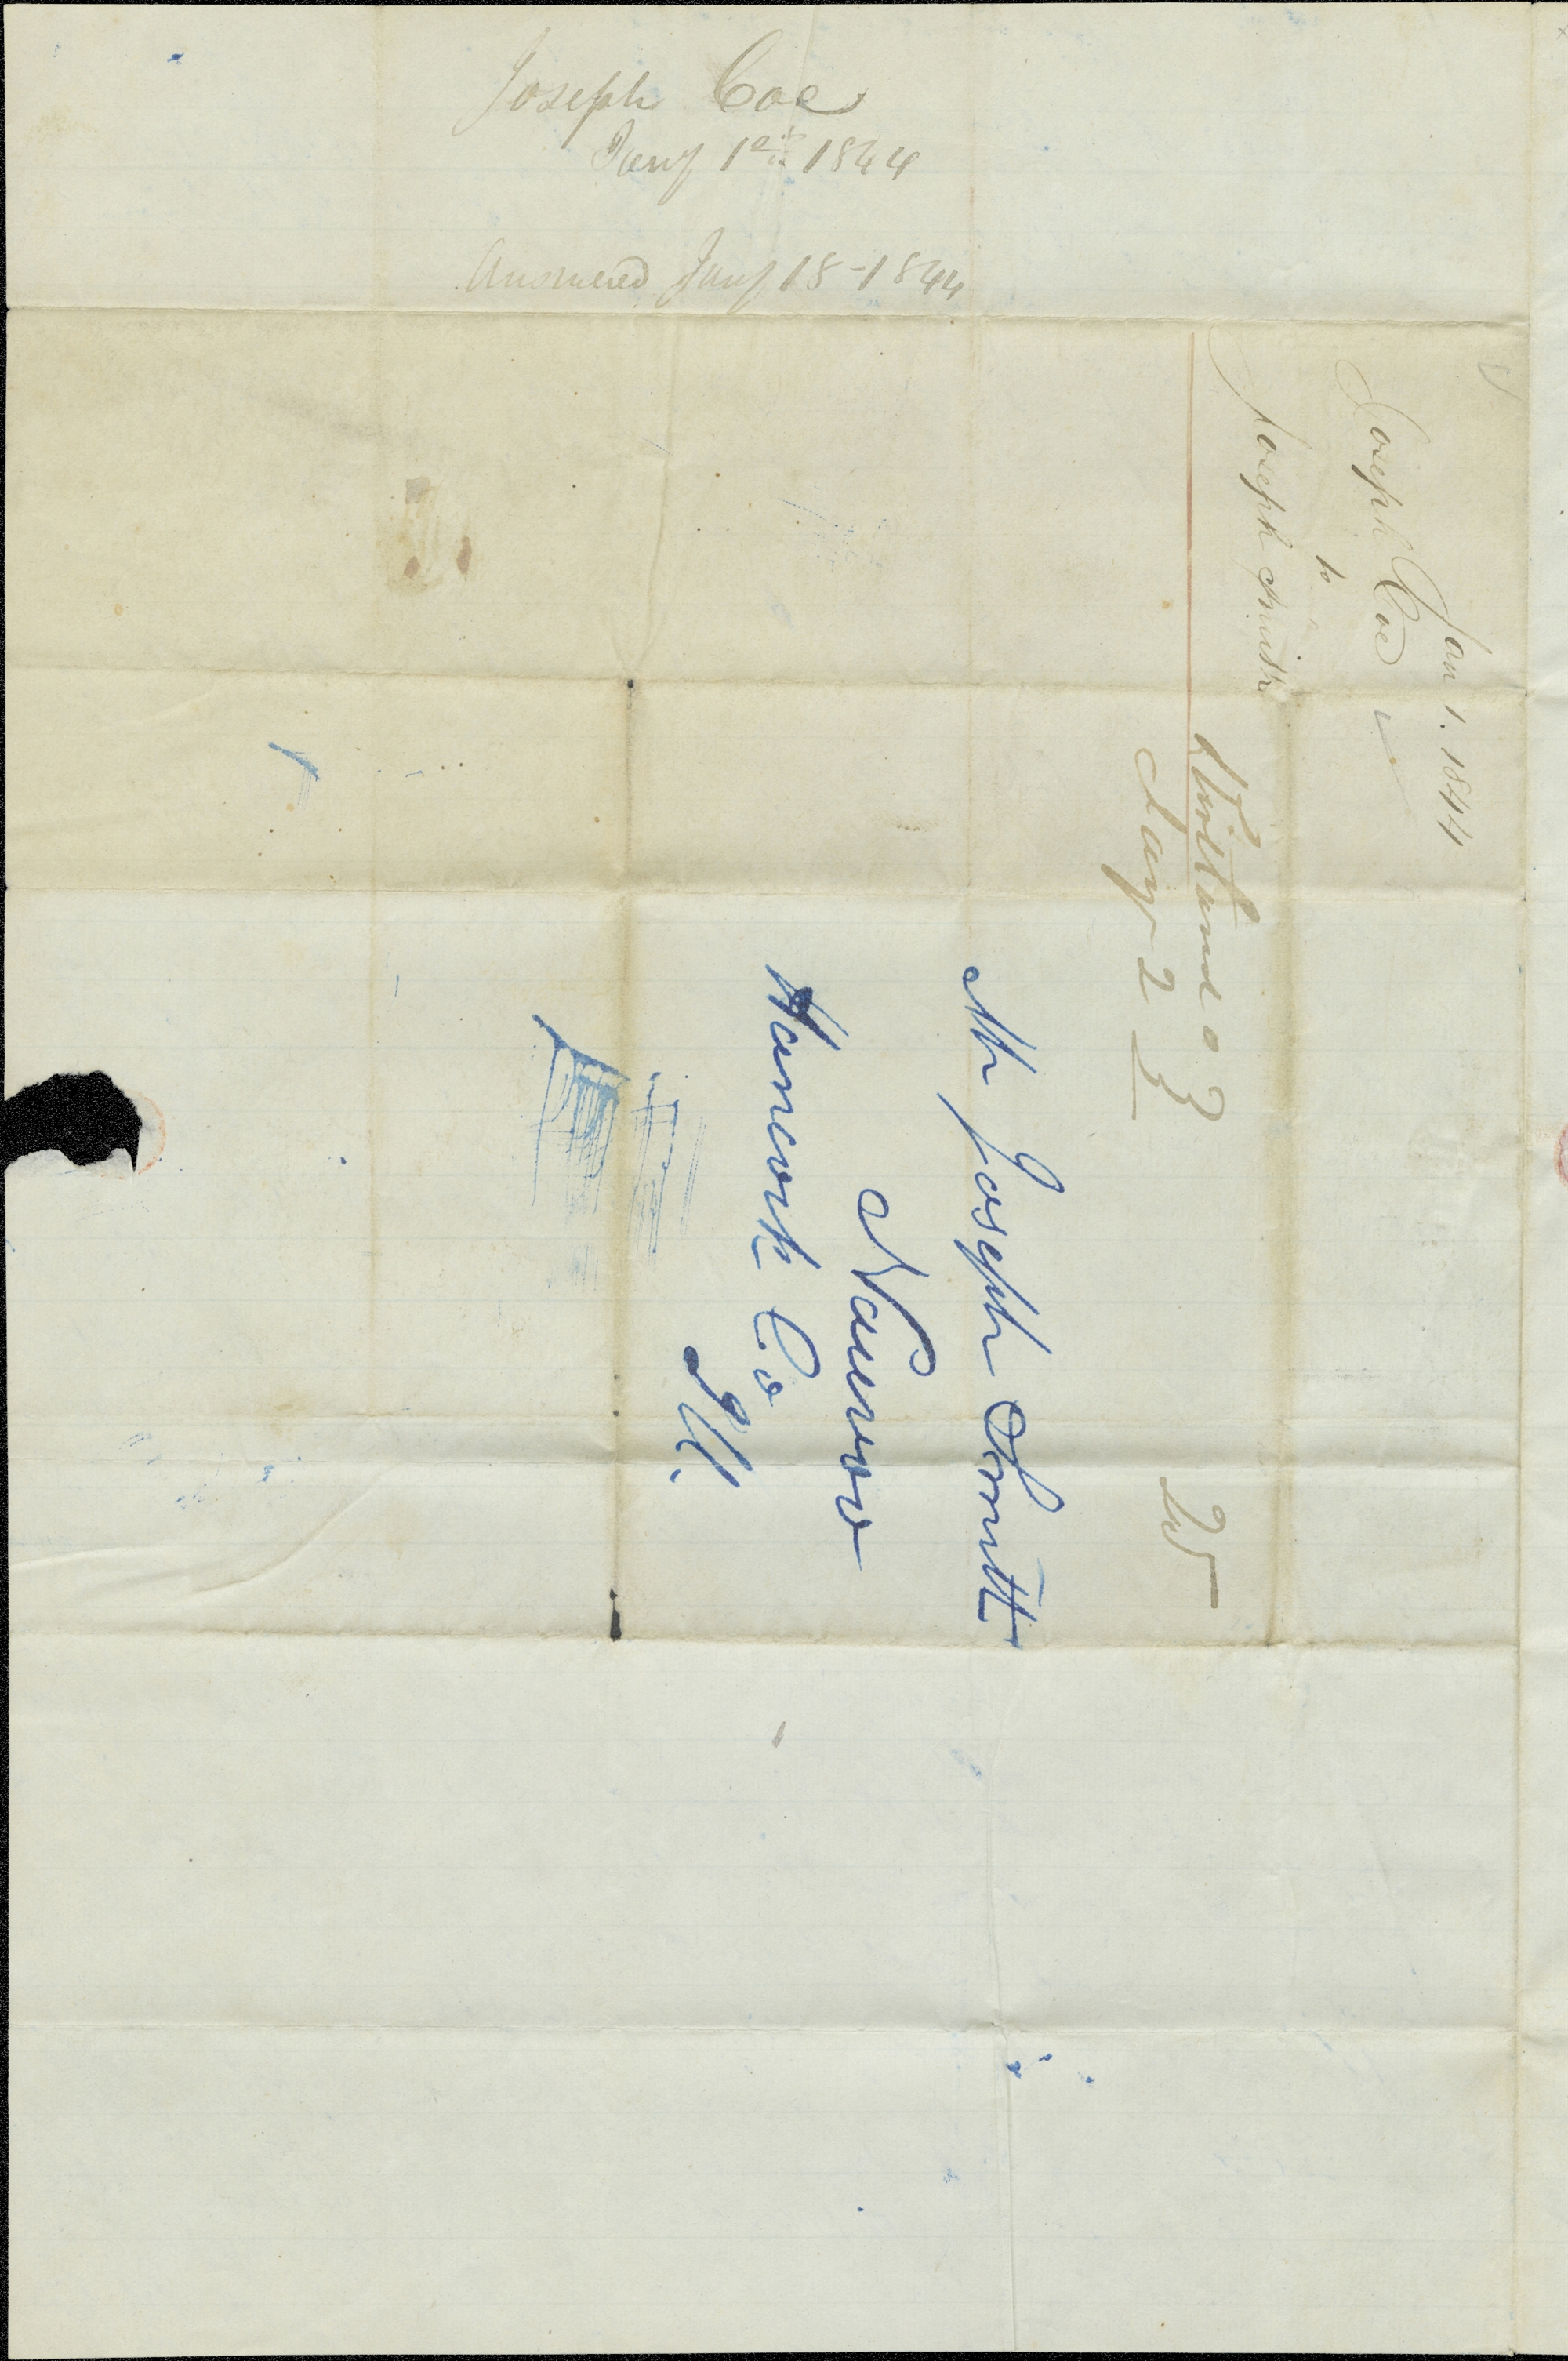 Joseph Coe
Jany 1st 1844
Answered Jany 18-1844
Jan 1. 1844
Joseph Coe
to
Joseph Smith
Kirtland O
Jany 2
25
Mr Joseph Smith
Nauvoo
Hancock Co
Ill.